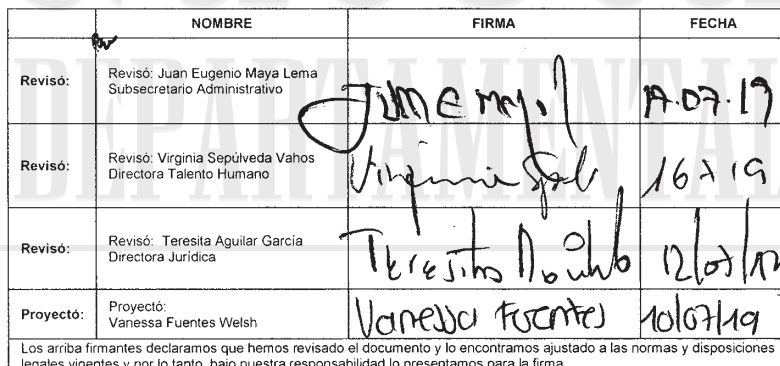 NOMBRE FIRMA FECHA
Revisó: Revisó: Juan Eugenio Maya Lema
Subsecretario Administrativo
17.07.19
Revisó: Revisó: Virginia Sepúlveda Vahos
Directora Talento Humano
Virginia
Revisó: Revisó: Teresita Aguilar García
Directora Jurídica
Teresita 12/07/
Proyectó: Proyectó:
Vanessa Fuentes Welsh
Vanessa Fuentes 10/07/19
Los arriba firmantes declaramos que hemos revisado el documento y lo encontramos ajustado a las normas y disposiciones
legales vigentes y por lo tanto, bajo nuestra responsabilidad lo presentamos para la firma.
DEPARTAMENTAL